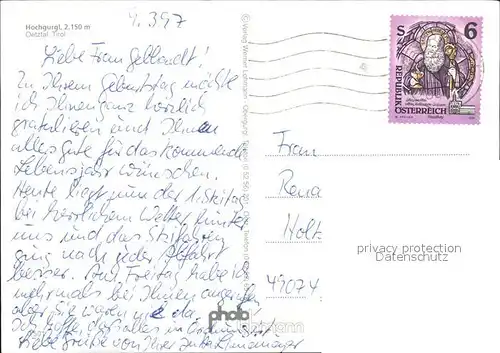 Hochgurgl, 2.150 m
Oetztal, Tirol
4.3.97
Liebe Frau Gebhardt!
Zu Ihrem Geburtstag möchte
ich Ihnen ganz herzlich
gratulieren und Ihnen
alles gute für das kommende
Lebensjahr wünschen.
Heute liegt nun der 1. Skitag
bei herrlichem Wetter hinter
uns und das Skifahren
ging nach jeder Abfahrt
besser. Am Freitag habe ich
mehrmals bei Ihnen angerufen
aber Sie waren nie da.
Ich hoffe, daß alles in Ordnung ist.
Liebe Grüße von Ihrer
© Verlag
REPUBLIK
ÖSTERREICH
S
6
Frau
Rena
Holt
49074
privacy protection
Datenschutz
photo